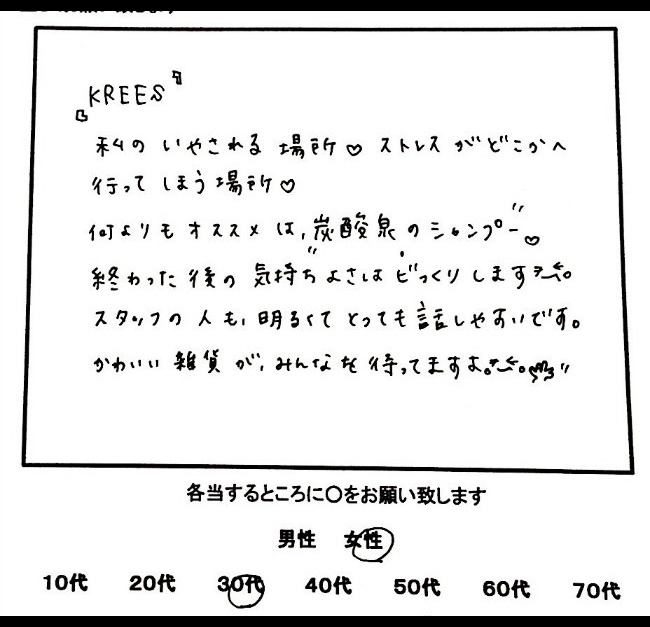 『KREES』
私のいやされる場所♡ ストレスがどこかへ
行ってしまう場所♡
何よりもオススメは、"炭酸泉のシャンプー"♡
終わった後の気持ちよさはビックリします
スタッフの人も、明るくてとっても話しやすいです。
かわいい雑貨が、みんなを待ってますよ。
各当するところに〇をお願い致します
男性 女性
10代 20代 30代 40代 50代 60代 70代